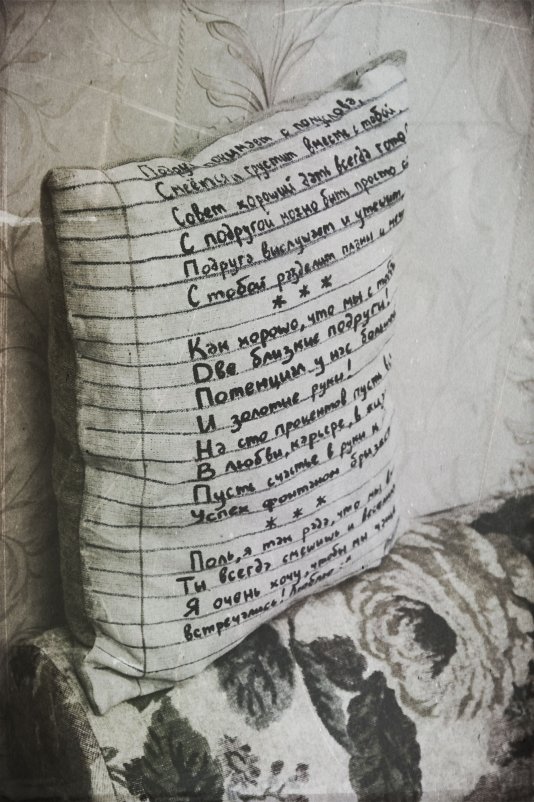 Подруга понимает с полуслова,
Смеётся и грустит вместе с тобой,
Совет хороший дать всегда гото
С подругой можно быть просто со
Подруга выслушает и утешит,
С тобой разделит планы и меч
* * *
Как хорошо, что мы с тобо
Две близкие подруги!
Потенциал у нас большо
И золотые руки!
На сто процентов пусть в
В любви, карьере, в жиз
Пусть счастье в руки и
Успех фонтаном бризже
* * *
Поль, я так рада, что мы в
Ты всегда смешишь и веселиш
Я очень хочу, чтобы мы чаще
встречались! Люблю